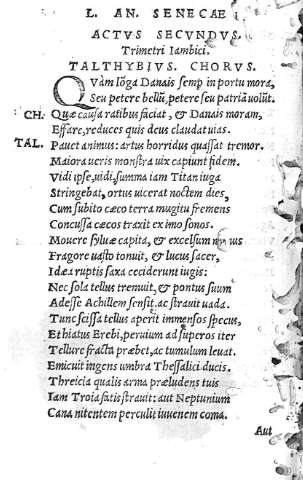 L. AN. SENECAE
ACTVS SECVNDVS.
Trimetri Iambici.
TALTHYBIVS. CHORVS.
QVàm lõga Danais semp in portu mora,
Seu petere bellũ, petere seu patriã uolũt.
CH. Quæ causa ratibus faciat, & Danais moram,
Effare, reduces quis deus claudat uias.
TAL. Pauet animus: artus horridus quassat tremor.
Maiora ueris monstra uix capiunt fidem.
Vidi ipse, uidi, summa iam Titan iuga
Stringebat, ortus uicerat noctem dies,
Cum subito cæco terra mugitu fremens
Concussa cæcos traxit ex imo sonos.
Mouere syluæ capita, & excelsum us
Fragore uasto tonuit, & lucus sacer,
Idæa ruptis saxa ceciderunt iugis:
Nec sola tellus tremuit, & pontus suum
Adesse Achillem sensit, ac strauit uada.
Tunc scissa tellus aperit immensos specus,
Et hiatus Erebi, peruium ad superos iter
Tellure fracta præbet, ac tumulum leuat.
Emicuit ingens umbra Thessalici ducis.
Threicia qualis arma præludens tuis
Iam Troia fatis strauit: aut Neptunium
Cana nitentem perculit iuuenem coma.
Aut